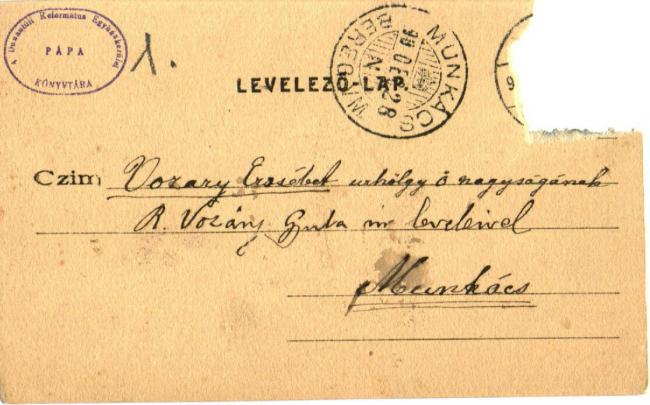 A Dunántúli Református Egyházkerület
PÁPA
KÖNYVTÁRA
1.
LEVELEZŐ-LAP.
MUNKÁCS
BEREG M.
28
Czim Vozary Erzsébet urhölgy ő nagyságának
R. Vozáry Gyula úr leveleivel
Munkács